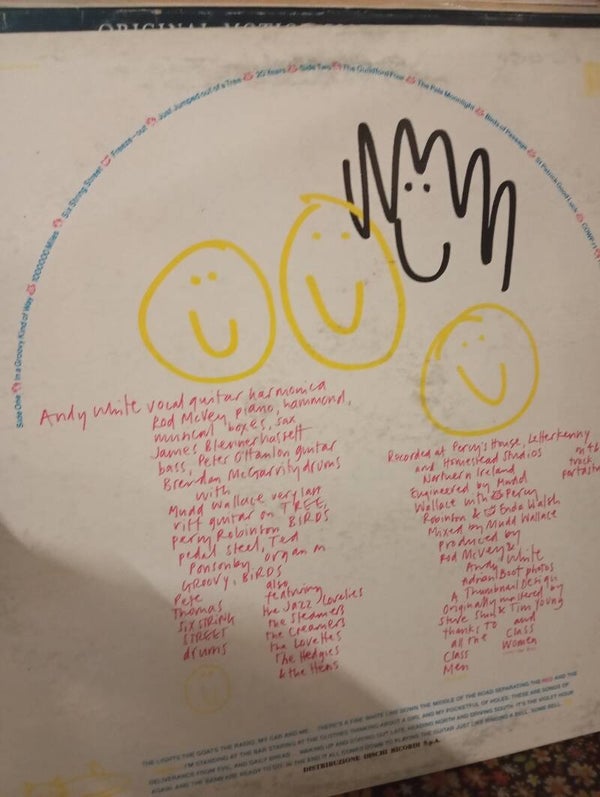 ORIGINAL MOTION
Side One In a Groovy Kind of Way 1000000 Miles Six String Street Freeze-out Just Jumped out of a Tree 20 Years Side Two The Guildford Four The Pale Moonlight Birds of Passage St Patrick Good Luck
Andy White vocal guitar harmonica
Rod McVey, piano, hammond,
musical boxes, sax
James Blennerhassett
bass, Peter O'Hanlon guitar
Brendan McGarrity drums
with
Mudd Wallace very last
riff guitar on TREE,
percy Robinson BIRDS
pedal steel, Ted
Ponsonby, organ in
GROOVY, BIRDS
Pete
Thomas
SIX STRING
STREET
drums
also
featuring
the Jazz Lovelies
the Steamers
the Creamers
the Lovettes
The Hedgies
& the Hens
Recorded at Percy's House, Letterkenny
and Homestead Studios
Northern Ireland
Engineered by Mudd
Wallace with Percy
Robinson & Enda Walsh
Mixed by Mudd Wallace
Produced by
Rod McVey &
Andy White
Adrian Boot photos
A Thumbnail Design
Originally mastered by
Steve Shark Tim Young
thanks To and
all the Class
Class Women
Men
track
THE LIGHTS THE GOATS THE RADIO, MY CAR AND ME. THERE'S A FINE WHITE LINE DOWN THE MIDDLE OF THE ROAD SEPARATING THE RED AND THE
I'M STANDING AT THE BAR STARING AT THE CLOTHES THINKING ABOUT A GIRL AND MY POCKETFUL OF HOLES. THESE ARE SONGS OF
DELIVERANCE FROM EVIL, AND DAILY BREAD WAKING UP AND STAYING OUT LATE, HEADING NORTH AND DRIVING SOUTH. IT'S THE VIOLET HOUR
AGAIN, AND THE BAND ARE READY TO GO. IN THE END IT ALL COMES DOWN TO PLAYING THE GUITAR JUST LIKE RINGING A BELL. SOME BELL.
DISTRIBUZIONE DISCHI RICORDI S.p.A.